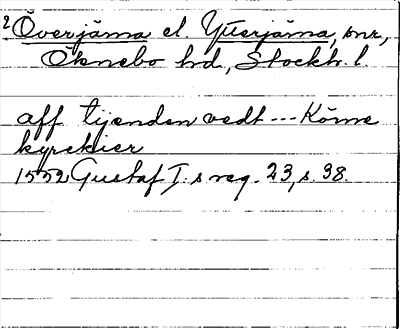 2 Överjärna el. Ytterjärna, snr,
Öknebo hd, Stockh. l.
aff tijenden vedt --- Körne
kyrekier
1552 Gustaf I:s reg. 23, s. 38.